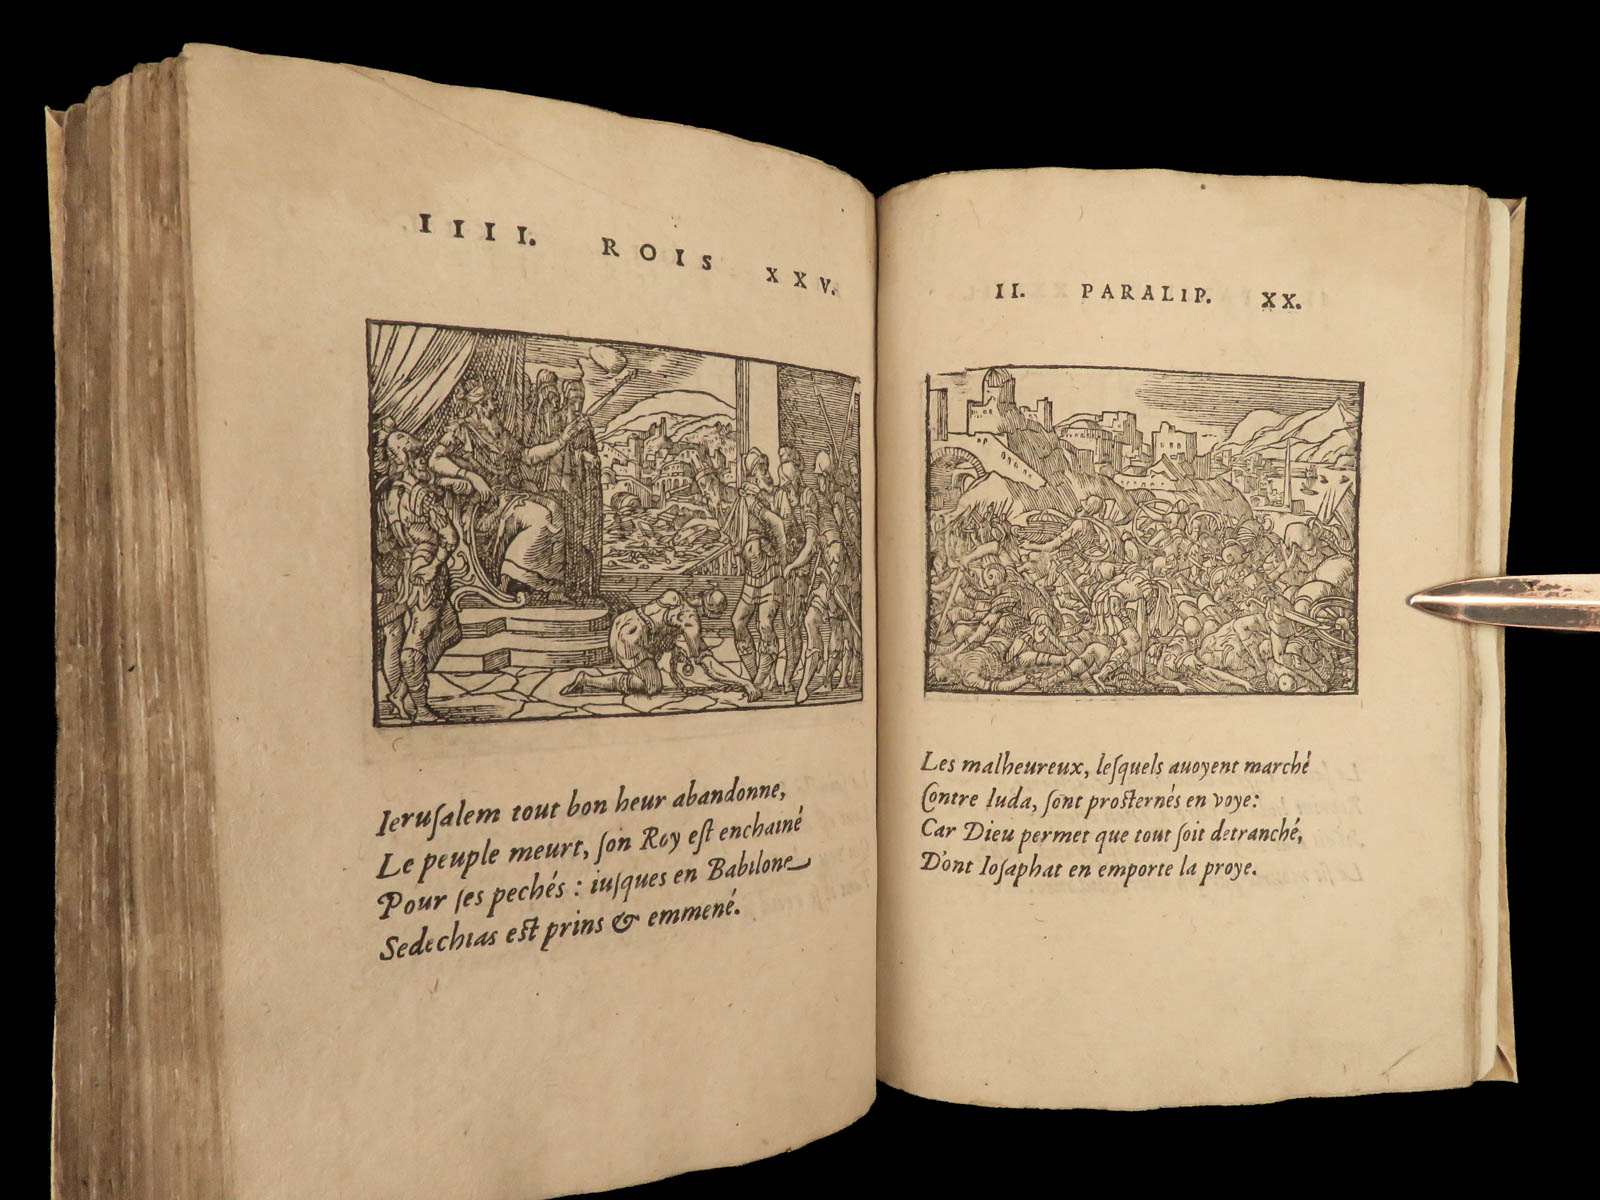 IIII. ROIS XXV.
Ierusalem tout bon heur abandonne,
Le peuple meurt, son Roy est enchainé
Pour ses pechés : iusques en Babilone
Sedechias est prins & emmené.
II. PARALIP. XX.
Les malheureux, lesquels auoyent marché
Contre Iuda, sont prosternés en voye:
Car Dieu permet que tout soit detranché,
D'ont Iosaphat en emporte la proye.